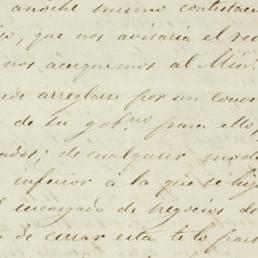 anoche mismo contestacio
que nos avisaria el re
nos acerquemos al Min.
ede arreglarse por un conve
de tu gob.no para ello,
ados; de cualquier modo
inferior á la que se fij
l encargado de negocios de
s de cerrar esta te lo par